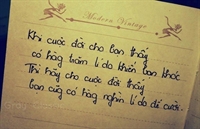 Modern Vintage
Khi cuộc đời cho bạn thấy
có hàng trăm lí do khiến bạn khóc
Thì hãy cho cuộc đời thấy
bạn cũng có hàng nghìn lí do để cười.